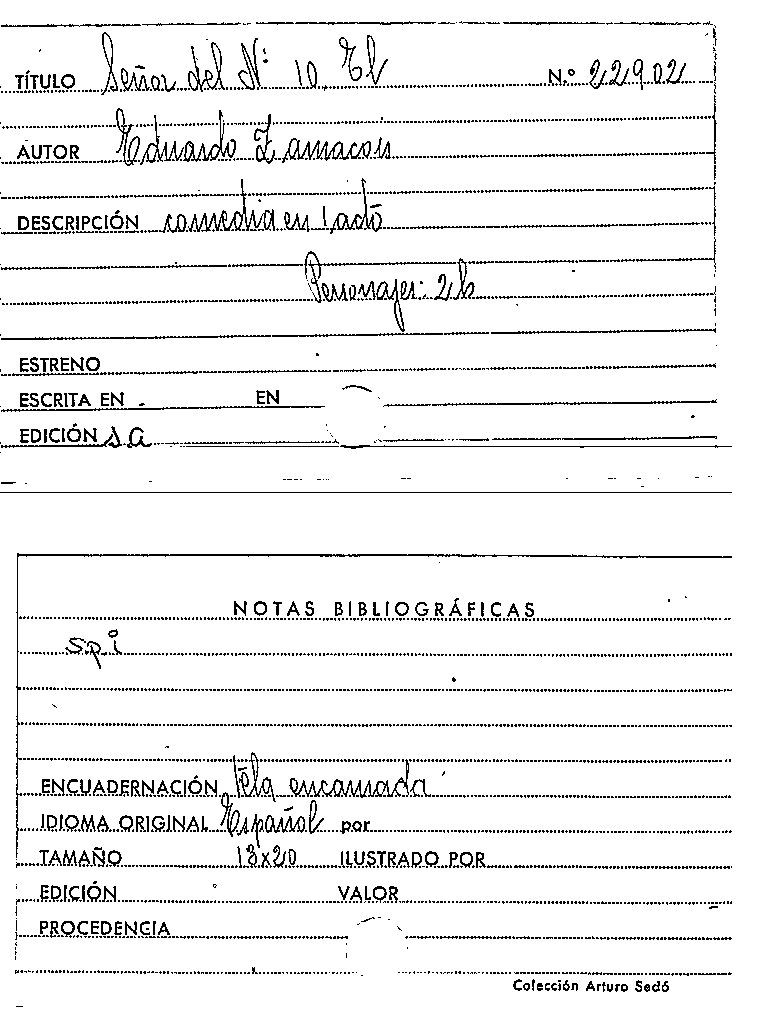 TÍTULO Señor del Nº 10, El N.º 22902
AUTOR Eduardo Zamacois
DESCRIPCIÓN comedia en 1 acto
Personajes: 2h
ESTRENO
ESCRITA EN EN
EDICIÓN s a
NOTAS BIBLIOGRÁFICAS
spi
ENCUADERNACIÓN tela encarnada
IDIOMA ORIGINAL Español por
TAMAÑO 13x20 ILUSTRADO POR
EDICIÓN VALOR
PROCEDENCIA
Colección Arturo Sedó